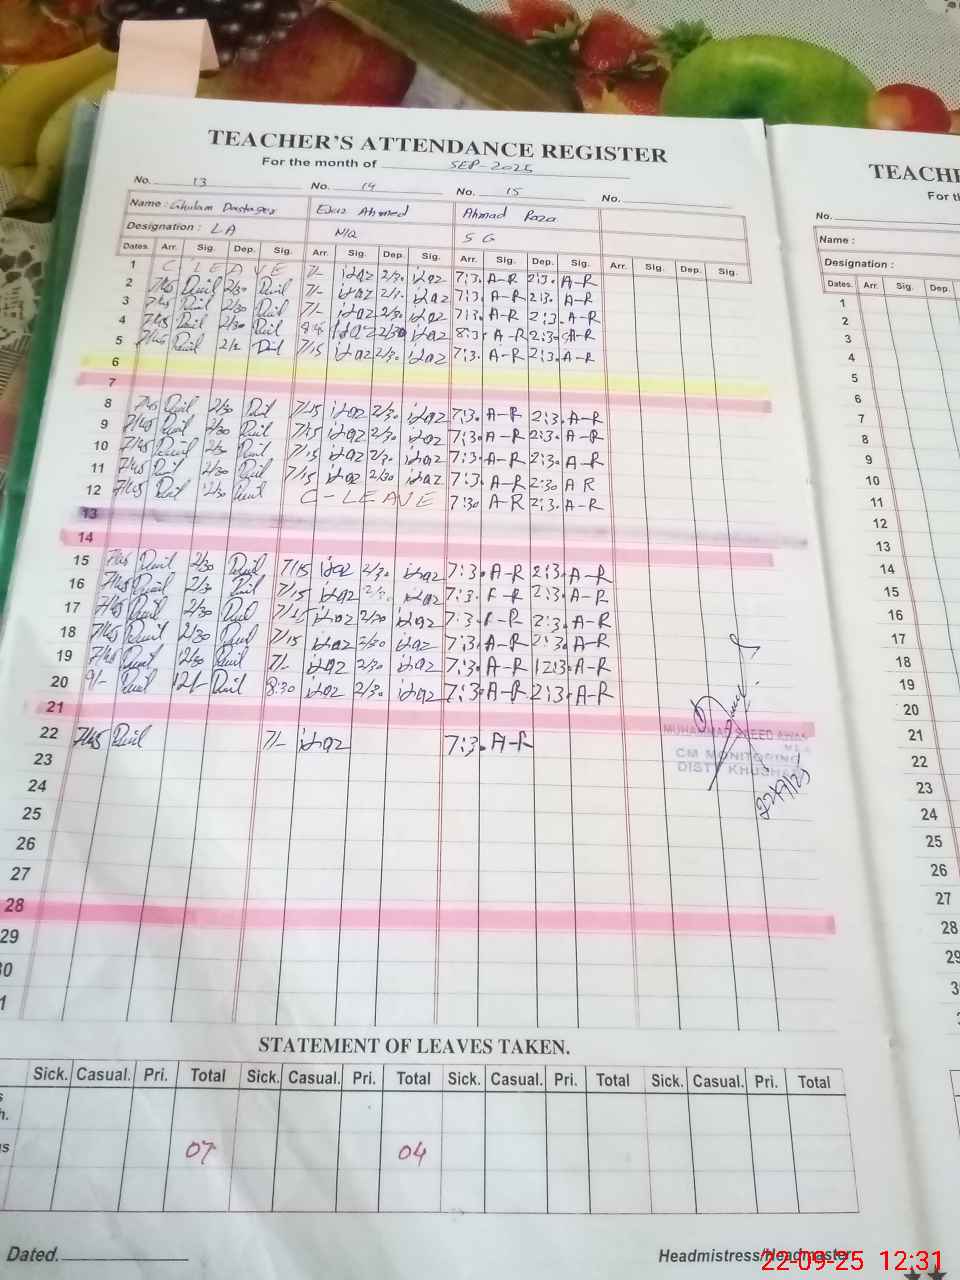 TEACHER'S ATTENDANCE REGISTER
For the month of SEP-2025
No. 13 No. 14 No. 15 No.
Name : Ghulam Dastager Ejaz Ahmed Ahmad Raza
Designation : LA N/Q S G
Dates. Arr. Sig. Dep. Sig. Arr. Sig. Dep. Sig. Arr. Sig. Dep. Sig. Arr. Sig. Dep. Sig.
1 C-LEAVE 7/- 2/30 7:3. A-R 2:3. A-R
2 7/45 2/30 7/- 2/3. 7:3. A-R 2:3. A-R
3 7/45 2/30 7/- 2/3. 7:3. A-R 2:3. A-R
4 7/45 2/30 2/30 8:3. A-R 2:3. A-R
5 7/45 7/15 2/3. 7:3. A-R 2:3. A-R
6
7
8 7/45 2/30 7/15 2/3. 7:3. A-R 2:3. A-R
9 7/45 2/30 7/15 2/3. 7:3. A-R 2:3. A-R
10 7/45 2/30 7/15 2/3. 7:3. A-R 2:3. A-R
11 7/45 2/30 7/15 2/30 7:3. A-R 2:30 A R
12 7/45 12/30 C-LEAVE 7:30 A-R 2:3. A-R
13
14
15 7/45 2/30 7/15 2/3. 7:3. A-R 2:3. A-R
16 7/45 2/30 7/15 2/3. 7:3. A-R 2:3. A-R
17 7/45 2/30 7/15 2/30 7:3. A-R 2:3. A-R
18 7/45 2/30 7/15 2/30 7:3. A-R 2:3. A-R
19 7/45 12/30 7/- 2/30 7:3. A-R 12:3. A-R
20 9/- 12/- 8:30 2/3. 7:3. A-R 2:3. A-R
21
22 7/45 7/- 7:3. A-R
23
24
25
26
27
28
29
30
1
MUHAMMAD SAEED AWAN
MEA
CM MONITORING
DISTT KHUSHAB
22/9/25
STATEMENT OF LEAVES TAKEN.
Sick. Casual. Pri. Total Sick. Casual. Pri. Total Sick. Casual. Pri. Total Sick. Casual. Pri. Total
s
h.
us 07 04
Dated.
Headmistress/Headmaster
TEACHE
For th
No.
Name :
Designation :
Dates. Arr. Sig. Dep.
1
2
3
4
5
6
7
8
9
10
11
12
13
14
15
16
17
18
19
20
21
22
23
24
25
26
27
28
29
3
3
22-09-25 12:31